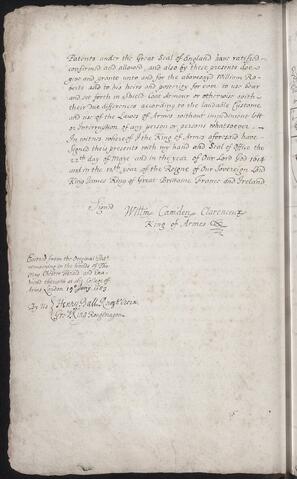 Patents under the Great Seal of England have ratified
confirmed and allowed, and also by these presents doe
give and graunte unto and for the abovesayd William Ro-
berts and to his heires and posterity for ever to use bear
and set forth in shield Coat Armour or otherwise with
their Due differences according to the laudable Customes
and use of the Lawes of Armes without impediment lett
or Interruption of any person or persons whatsoever
In witnes whereof I the King of Armes aforesaid have
Signed these presents with my hand and Seal of Office the
22th day of Maye and in the year of Our Lord God 1614
and in the 12th year of the Reigne of Our Sovereign Lord
King James King of Great Britaine France and Ireland
Signd Willm Camden Clarenceux
King of Armes
Entred from the Original
remaining in the hands of Tho:
King Chester Herald and Exa-
mined therewith at the College of
Armes London 19th 1703
By Us Henry Dall
Geo: King Rougdragon